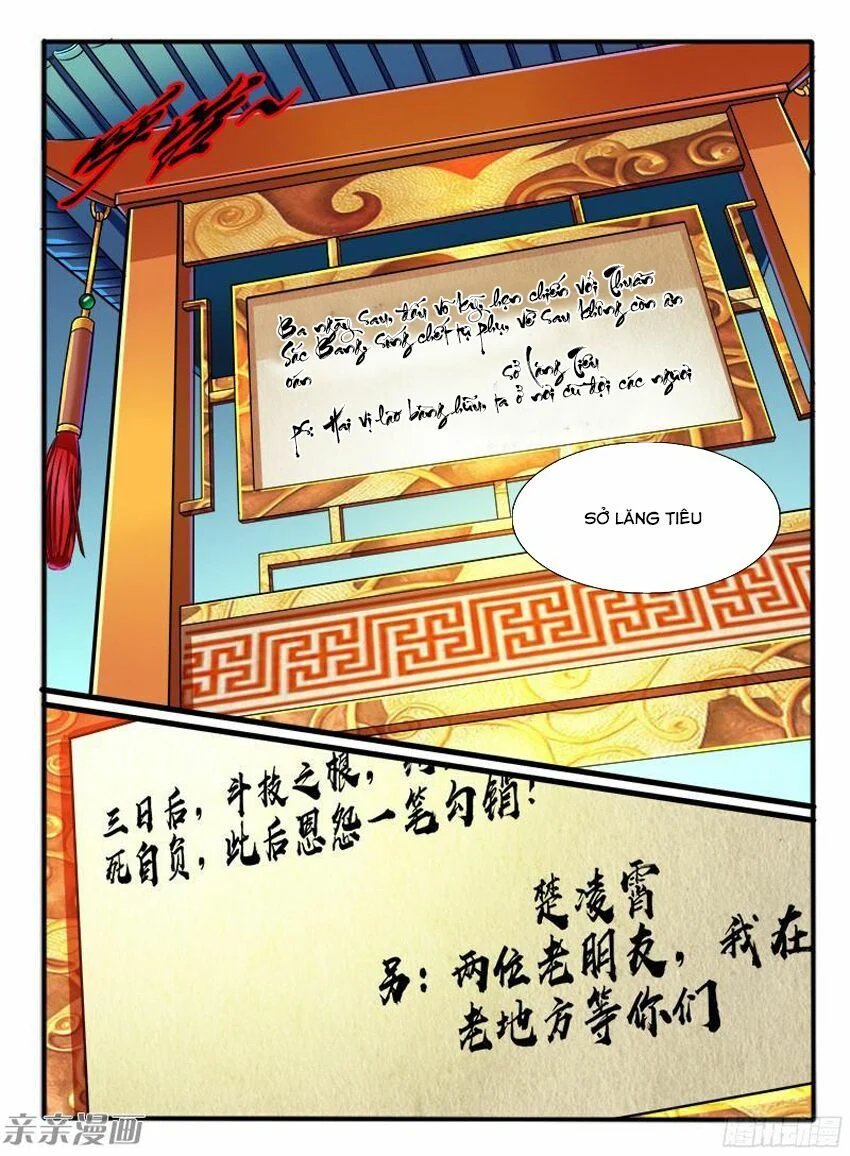 哗哗~
Ba ngày sau, đấu võ kỳ, hẹn chiến với Thuần
Sắc Bang, sống chết tự phụ, về sau không còn ân
oán
Sở Lăng Tiêu
PS: Hai vị lão bằng hữu, ta ở nơi cũ đợi các người
SỞ LĂNG TIÊU
三日后，斗技之根，
死自负，此后恩怨一笔勾销！
楚凌霄
另：两位老朋友，我在
老地方等你们
亲亲漫画
腾讯动漫